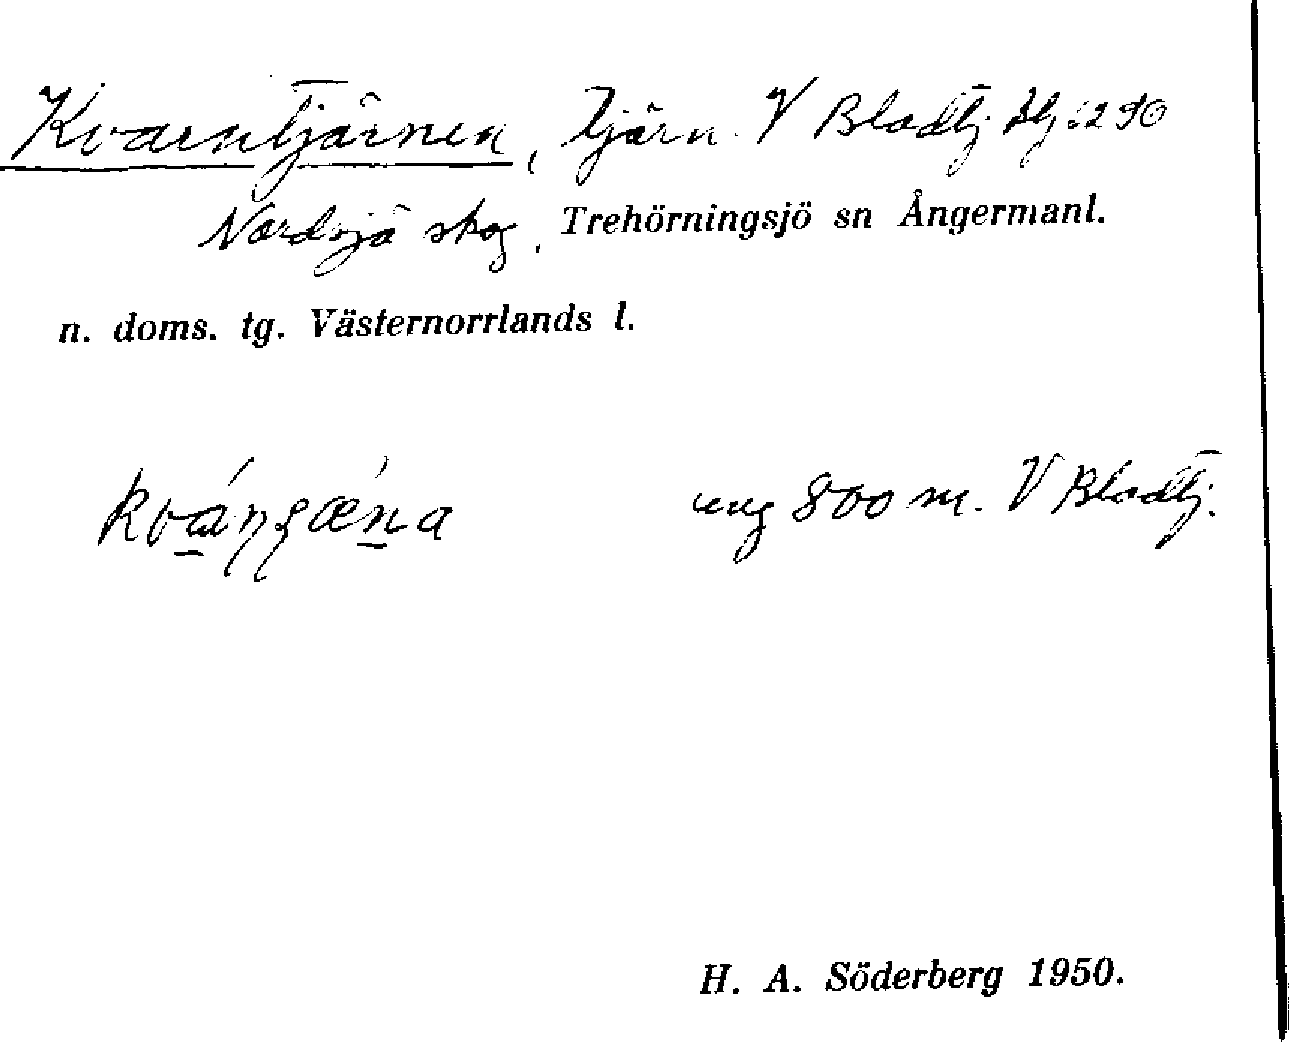 Kvarntjärnen, Tjärn. V Bladtj. Hj:290
Nordsjö skog, Trehörningsjö sn Ångermanl.
n. doms. tg. Västernorrlands l.
ung 800 m. V Bladtj.
H. A. Söderberg 1950.